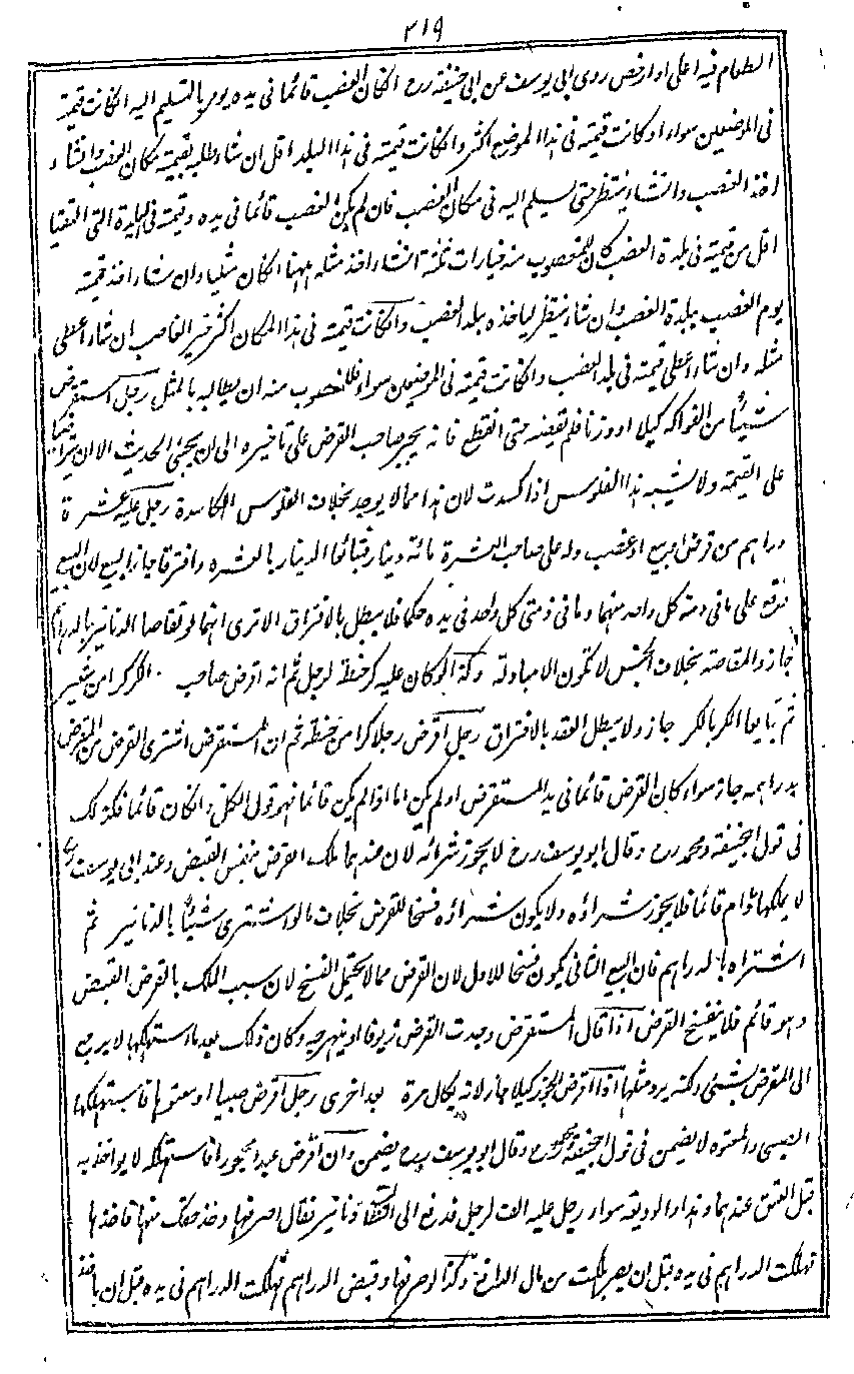 ٢١٩
الطعام فيه اعلى او ارخص روى ابى يوسف عن ابى حنيفة رح انكان الغصب قائما فى يده يومر بالتسليم اليه انكانت قيمته
فى الموضعين سواء او كانت قيمته فى هذا الموضع اكثر وانكانت قيمته فى هذا البلد اقل ان شاء طالبه بقيمته مكان الغصب وانشاء
اخذ الغصب وانشاء ينتظر حتى يسلم اليه فى مكان الغصب فان لم يكن الغصب قائما فى يده وقيمته فى البلدة التى التقيا
اقل من قيمته فى بلدة الغصب كان للمغصوب منه خيارات ثلثة انشاء اخذ مثله ههنا انكان مثليا وان شاء اخذ قيمته
يوم الغصب ببلدة الغصب وان شاء ينتظر لياخذه ببلد الغصب وانكانت قيمته فى هذا المكان اكثر خير الغاصب ان شاء اعطى
مثله وان شاء اعطى قيمته فى بلد الغصب وانكانت قيمته فى الموضعين سواء فللمغصوب منه ان يطالبه بالمثل رجل استقرض
شيئا من الفواكه كيلا او وزنا فلم يقبضه حتى انقطع فانه يجبر صاحب القرض على تاخيره الى ان يجئ الحديث الا ان يتراضيا
على القيمة ولا يشبه هذا الفلوس اذا كسدت لان هذا مما لا يوجد بخلاف الفلوس الكاسدة رجل عليه عشرة
دراهم من قرض او بيع او غصب وله على صاحب العشرة مائة دينار فتبائعا الدينار بالعشرة وافترقا جاز البيع لان البيع
وقع على ما فى ذمة كل واحد منهما وما فى ذمتى كل واحد فى يده حكما فلا يبطل بالافتراق الا ترى انهما لو تقاصا الدنانير بالدراهم
جاز والمقاصة بخلاف الجنس لا تكون الا مبادلة وكذا لو كان عليه كر حنطة لرجل ثم انه اقرض صاحب الكر كرا من شعير
ثم تبايعا الكر بالكر جاز ولا يبطل العقد بالافتراق رجل اقرض رجلا كرا من حنطة ثم ان المستقرض اشترى القرض من المقرض
بدراهمه جاز سواء كان القرض قائما فى يد المستقرض او لم يكن اما اذا لم يكن قائما فهو قول الكل وانكان قائما فكذلك
فى قول ابى حنيفة ومحمد رح وقال ابو يوسف رح لا يجوز شرائه لان عندهما ملك القرض بنفس القبض وعند ابى يوسف رح
لا يملكها مادام قائما فلا يجوز شراؤه ولا يكون شراؤه فسخا للقرض بخلاف ما لو اشترى شيئا بالدنانير ثم
اشتراه بالدراهم فان البيع الثانى يكون فسخا للاول لان القرض مما لا يحتمل الفسخ لان سبب الملك بالقرض القبض
وهو قائم فلا ينفسخ القرض اذا قال المستقرض وجدت القرض زيوفا او نبهرجة وكان ذلك بعد ما استهلكها لا يرجع
الى المقرض بشئ ولكنه يرد مثلها اذا اقرض الخبز كيلا جاز لانه يكال مرة بعد اخرى رجل اقرض صبيا او معتوها فاستهلكها
الصبى والمعتوه لا يضمن فى قول ابى حنيفة ومحمد رح وقال ابو يوسف رح يضمن وان اقرض عبدا محجورا فاستهلكه لا يواخذ به
قبل العتق عندهما وهذا والوديعة سواء رجل عليه الف لرجل فدفع الى الطالب دنانير فقال اصرفها وخذ حقك منها فاخذها
فهلكت الدراهم فى يده قبل ان يصرف هلكت من مال الدافع وكذا لو صرفها وقبض الدراهم فهلكت الدراهم فى يده قبل ان ياخذ